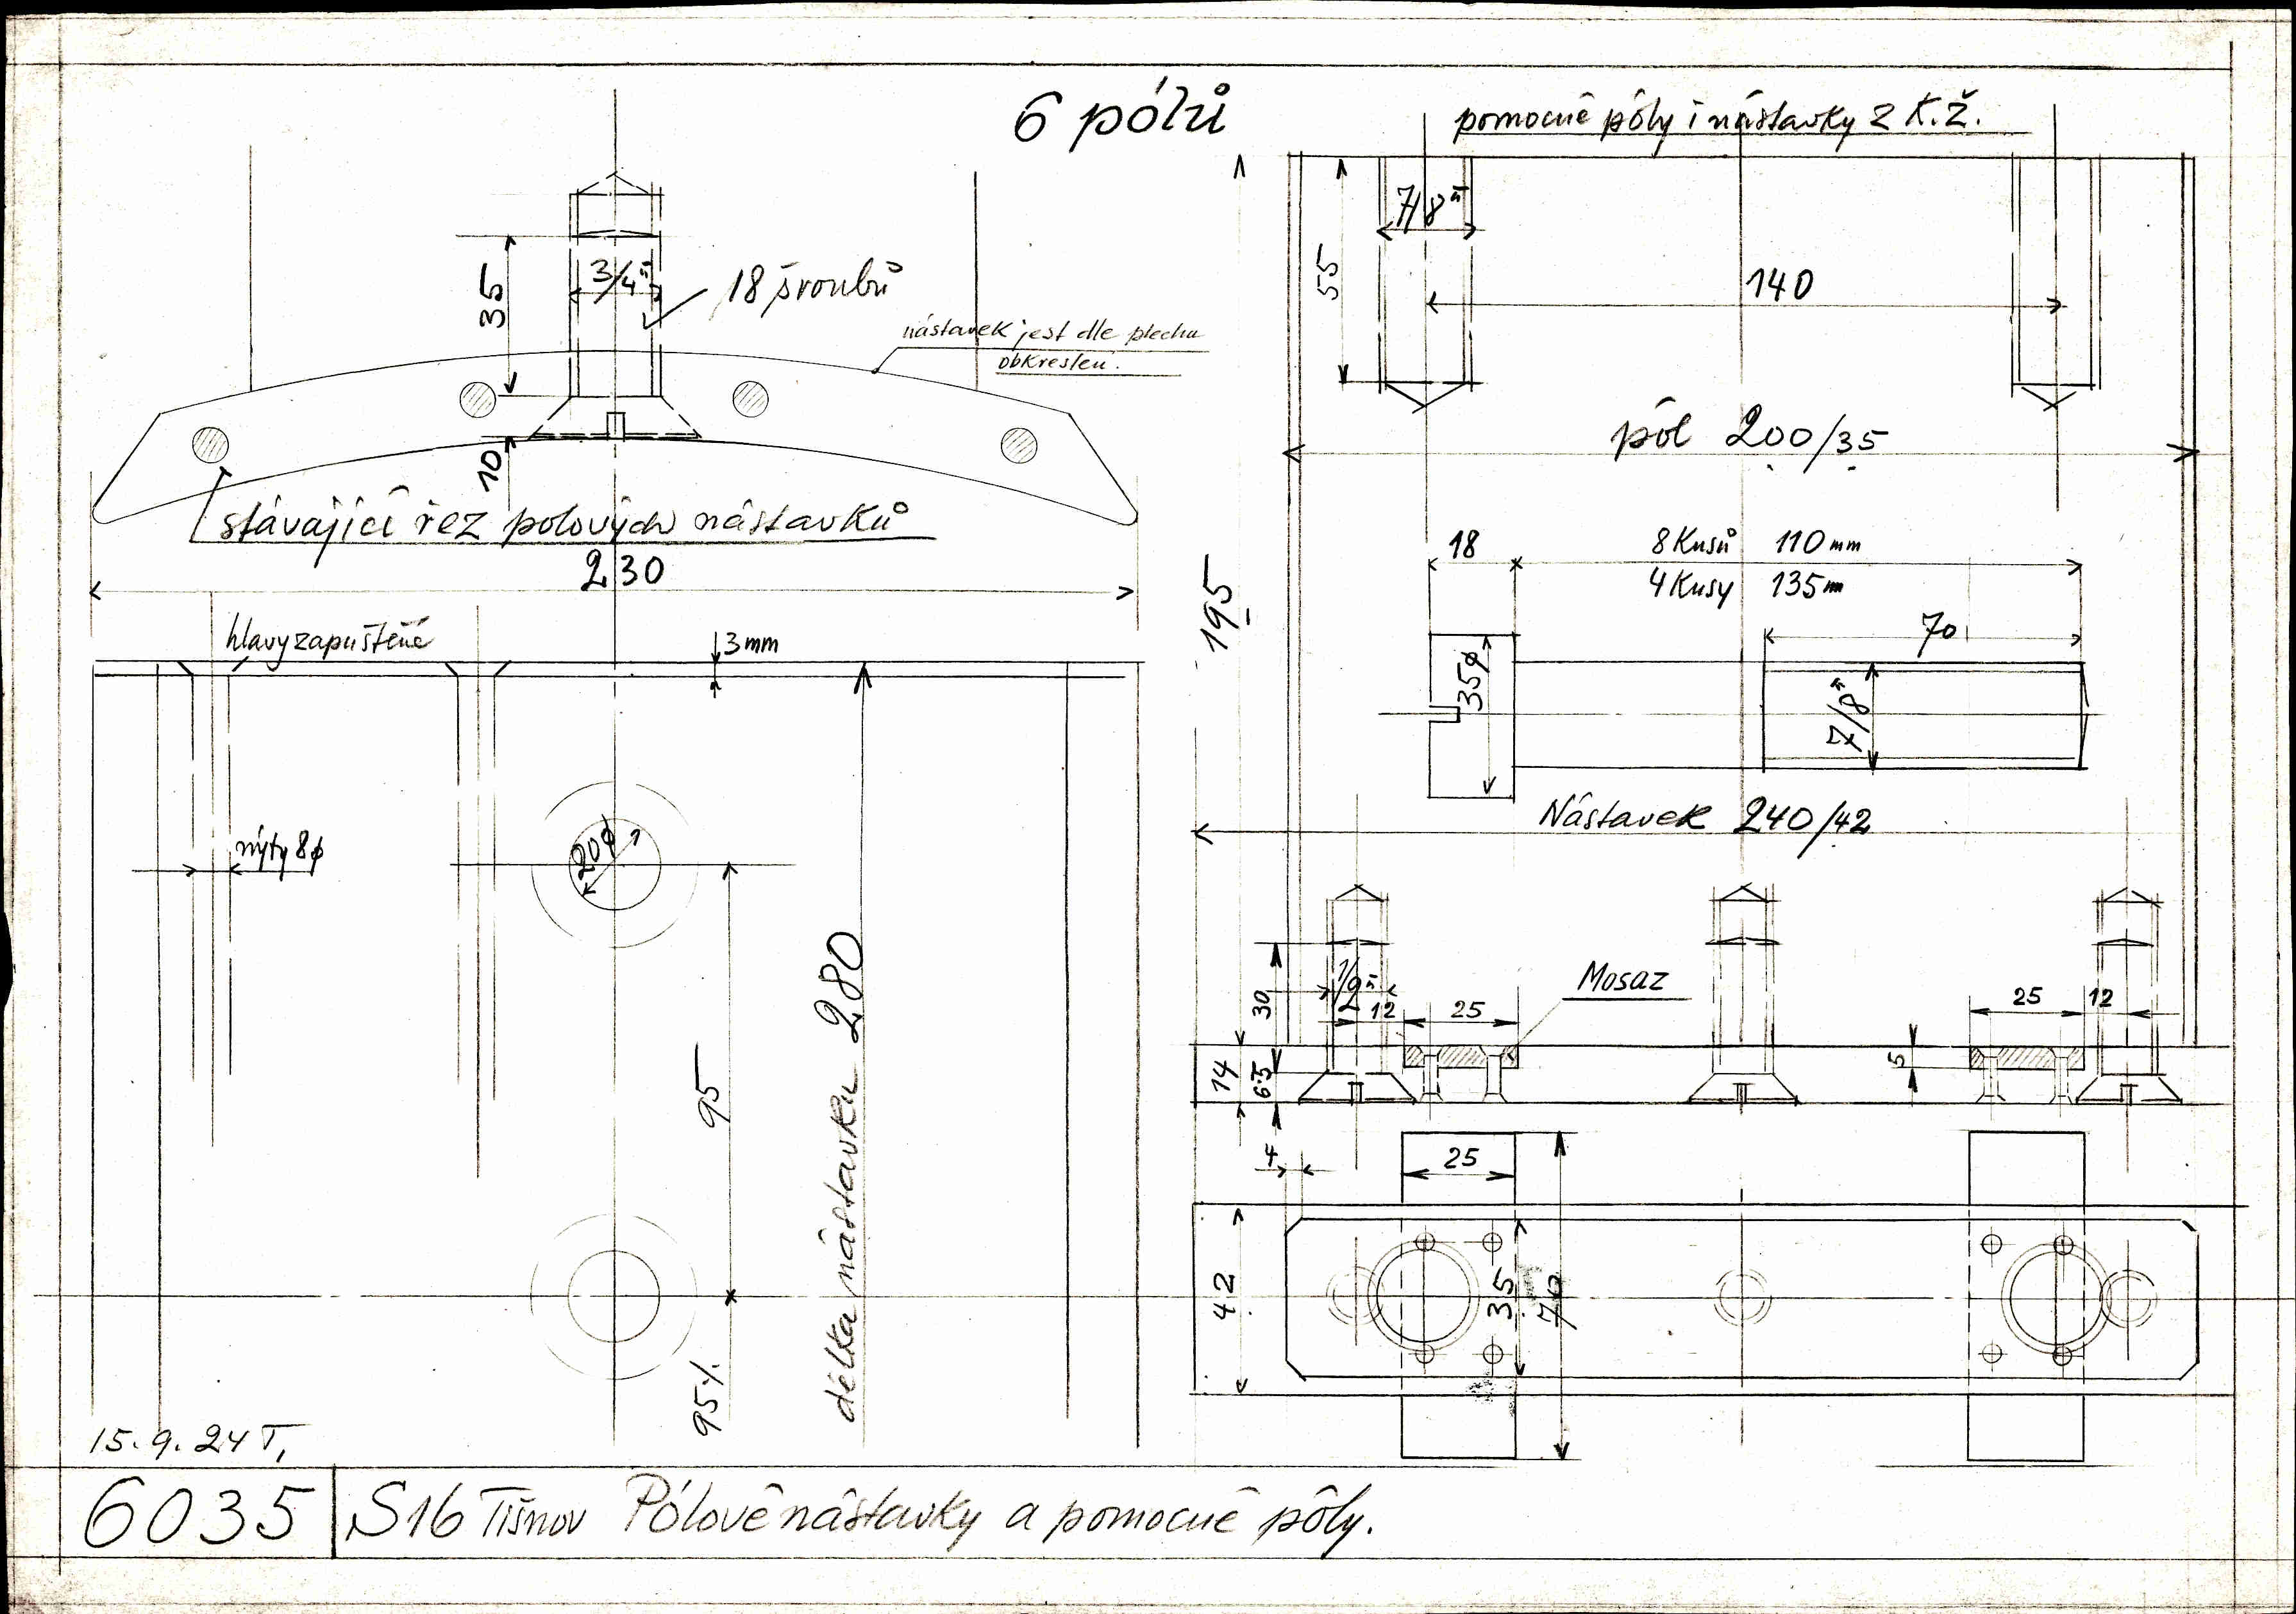 6 pólů
pomocné póly i nástavky z K.Ž.
7/8"
55
140
35
3/4"
18 šroubů
nástavek jest dle plechu
obkreslen.
10
stávající řez polových nástavků
230
pól 200/35
18
8 Kusů 110 mm
4 Kusy 135 m
70
195
35⌀
7/8"
hlavy zapuštěné
3 mm
Nástavek 240/42
nýty 8⌀
20⌀
95
95
délka nástavku 280
30
1/2"
12
25
Mosaz
25
12
14
6·5
5
4
25
42
35
70
15. 9. 24 T,
6035
S16 Tišnov Pólové nástavky a pomocné póly.